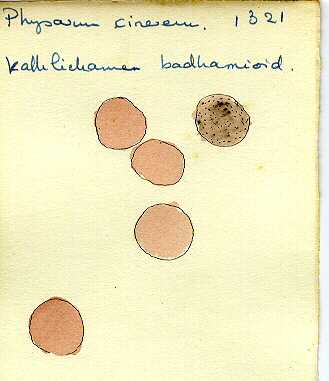 Physarum cinereum. 1321
Kalklichamen badhamioid.